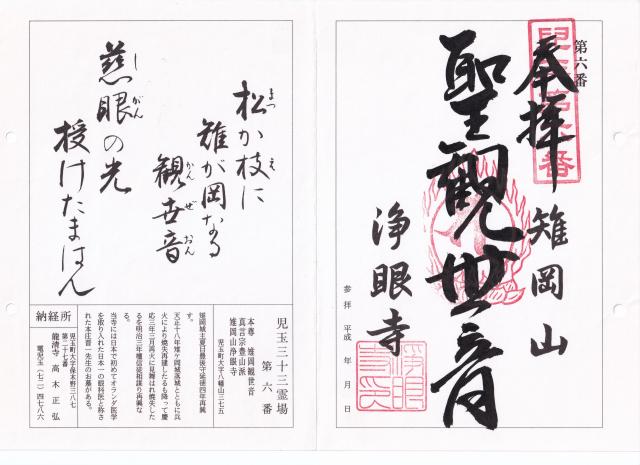 第六番
奉拝
雉岡山
聖観世音
浄眼寺
参拝 平成 年 月 日
松か枝に
雉が岡なる
観世音
慈眼の光
授けたまはん
まつ
え
かん
ぜ
おん
し
がん
児玉三十三霊場
第六番
児玉町大字八幡山三七五
本尊 雉岡観世音
真言宗豊山派
雉岡山浄眼寺
雉岡城主夏目最後守延徳四年再興
天正十八年雉ヶ岡城落城とともに兵
火により焼失再建したるも降って慶
応三年三月再火に見舞われ焼失した
るを明治三年檀信徒相謀り再興な
る。
当寺には日本で初めてオランダ医学
を取り入れた日本一の眼科医と称さ
れた本庄普一先生のお墓がある。
納経所
児玉町大字保木野三八七
第二十七番
龍清寺 高木正弘
電児玉(七二)四七八六